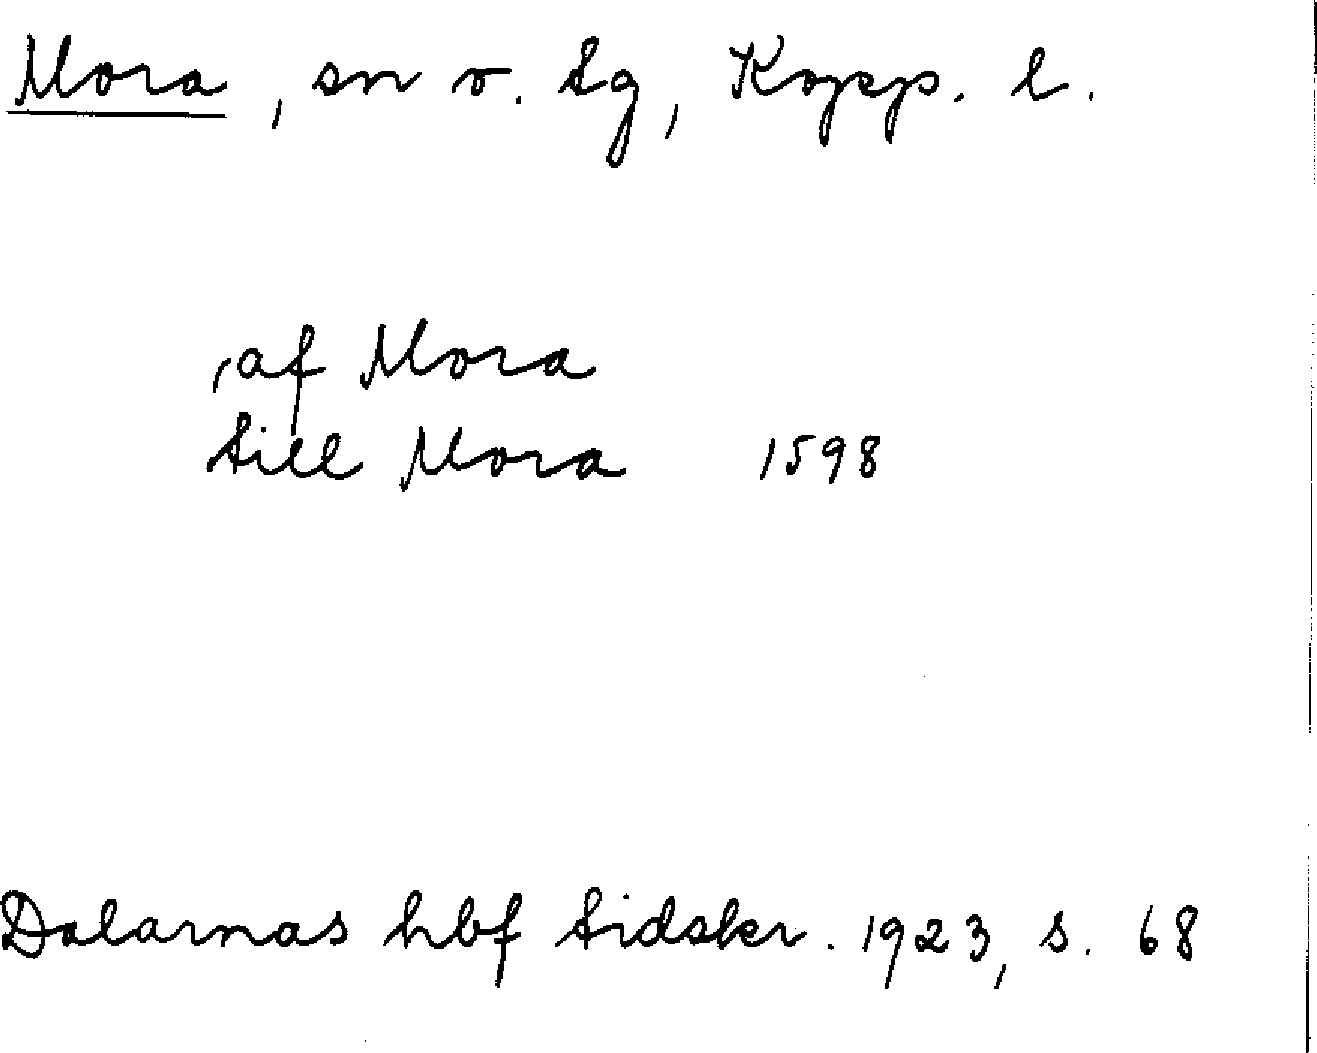 Mora, sn o. tg, Kopp. l.
, af Mora
till Mora 1598
Dalarnas hbf tidskr. 1923, s. 68